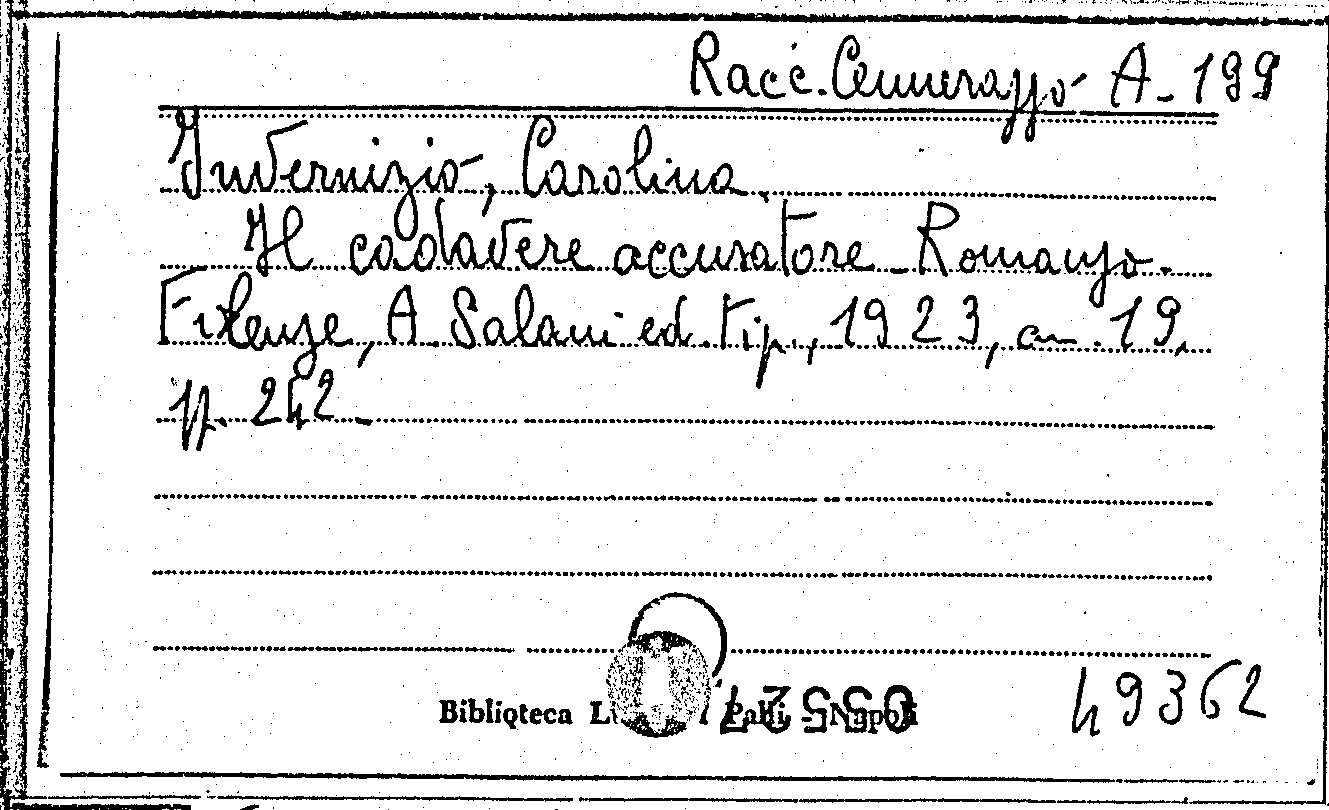 Racc. Cennerazzo A-199
Invernizio, Carolina.
Il cadavere accusatore - Romanzo.
Firenze, A. Salani ed. tip., 1923, cm. 19,
pp. 242 -
Biblioteca Napoli
49362